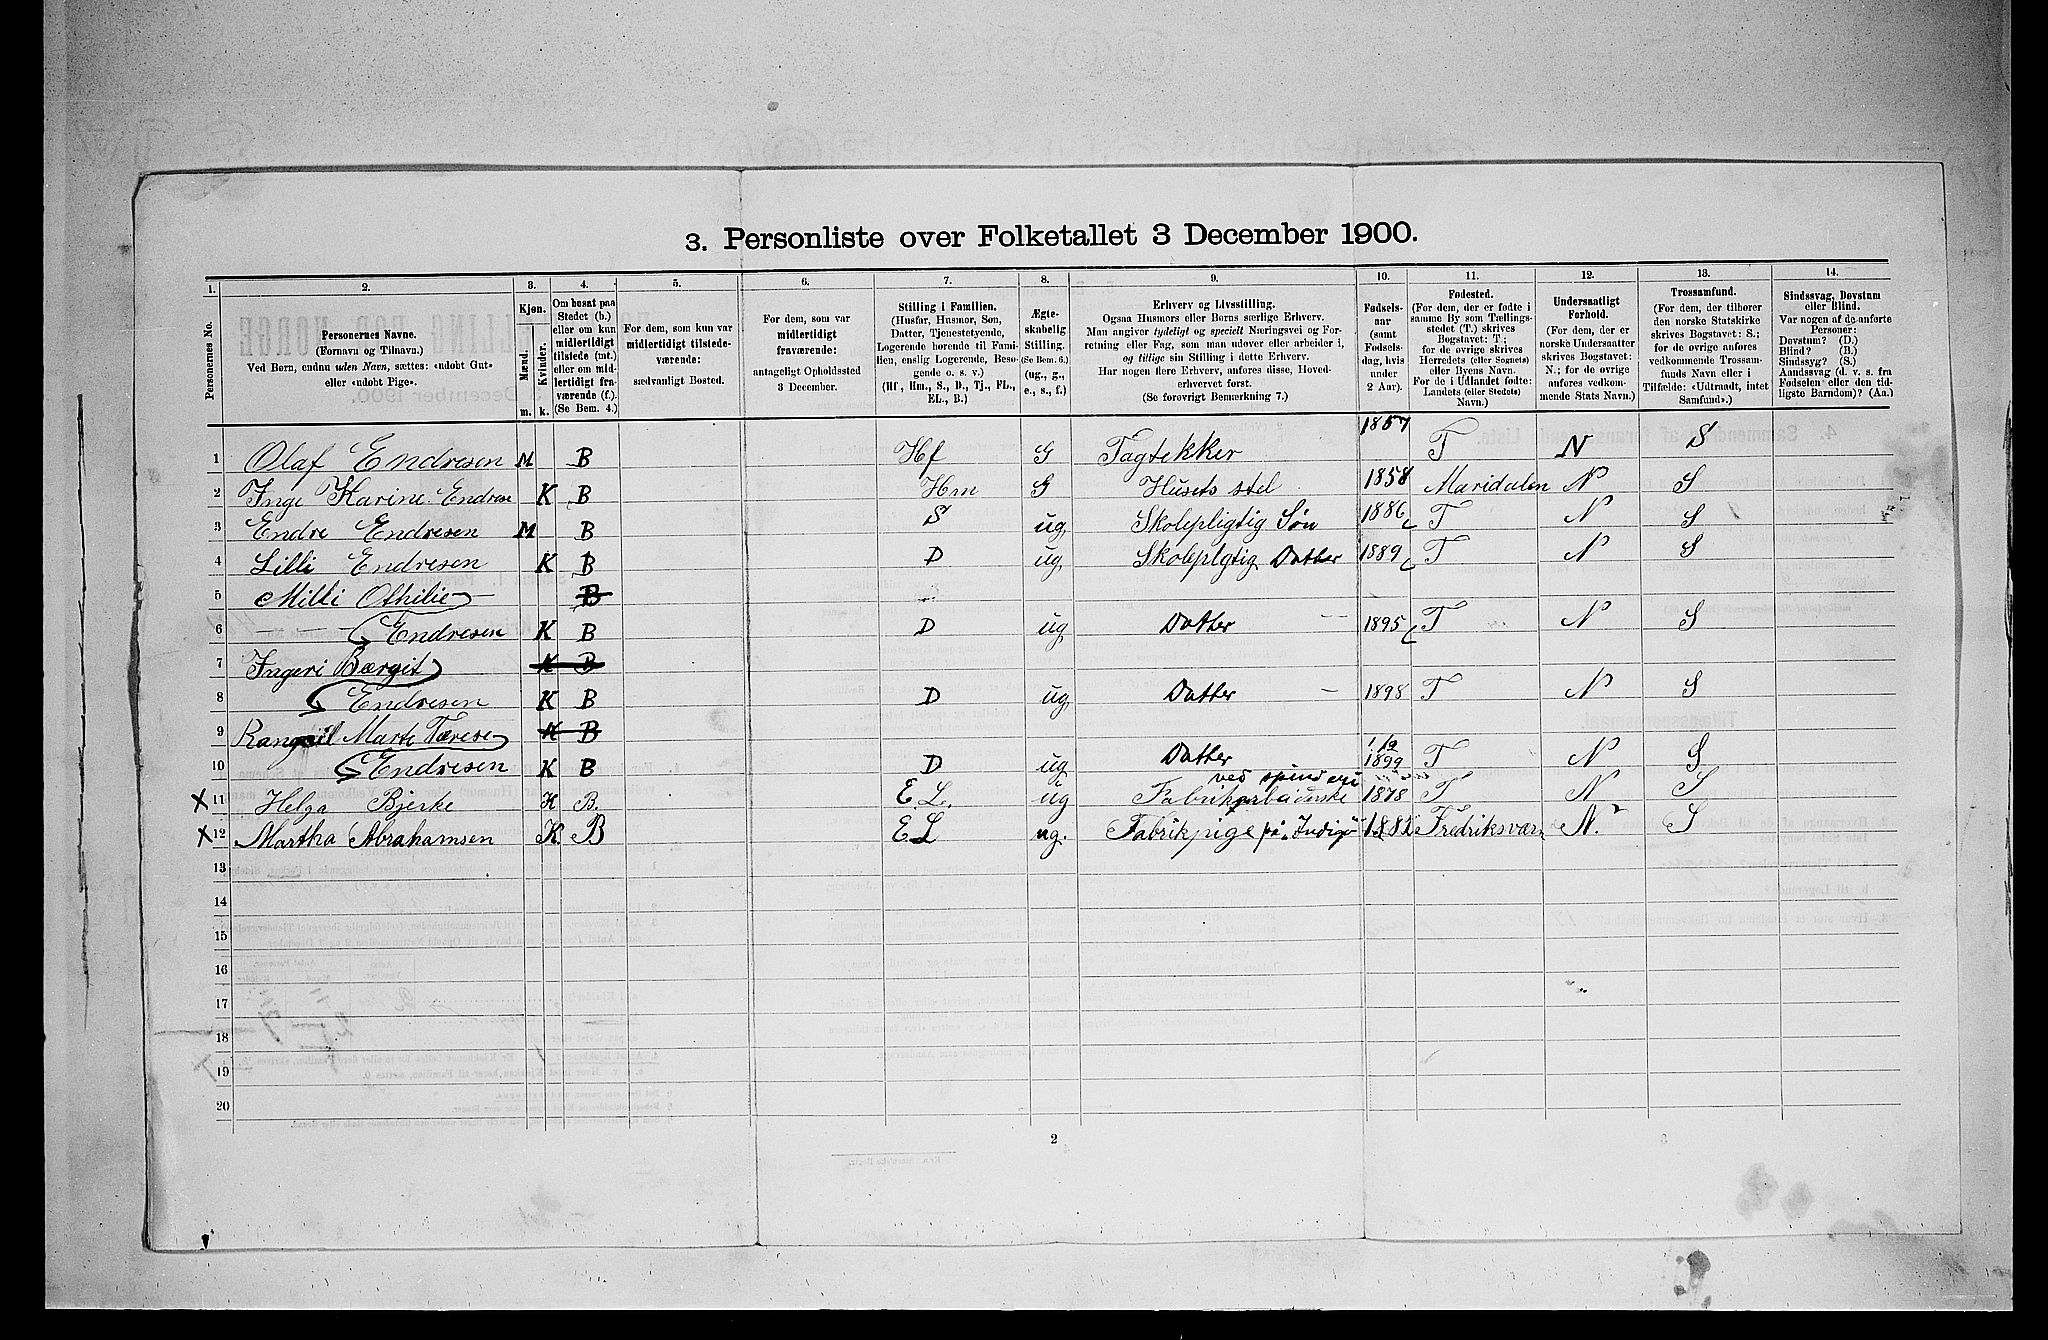 3. Personliste over Folketallet 3 December 1900.
1. 2. 3. 4. 5. 6. 7. 8. 9. 10. 11. 12. 13. 14.
Personernes No.
Personernes Navne.
(Fornavn og Tilnavn.)
Ved Børn, endnu uden Navn, sættes: «udøbt Gut»
eller «udøbt Pige».
Kjøn.
Mænd.
Kvinder.
m. k.
Om bosat paa
Stedet (b.)
eller om kun
midlertidigt
tilstede (mt.)
eller om mid-
lertidigt fra-
værende (f.)
(Se Bem. 4.)
For dem, som kun var
midlertidigt tilstede-
værende:
sædvanligt Bosted.
For dem, som var
midlertidigt
fraværende:
antageligt Opholdssted
3 December.
Stilling i Familien.
(Husfar, Husmor, Søn,
Datter, Tjenestetyende,
Logerende hørende til Fami-
lien, enslig Logerende, Besø-
gende o. s. v.)
(Hf, Hm., S., D., Tj., FL.,
EL., B.)
Ægte-
skabelig
Stilling.
(Se Bem. 6.)
(ug., g.,
e., s., f.)
Erhverv og Livsstilling.
Ogsaa Husmors eller Børns særlige Erhverv.
Man angiver tydeligt og specielt Næringsvei og For-
retning eller Fag, som man udøver eller arbeider i,
og tillige sin Stilling i dette Erhverv.
Har nogen flere Erhverv, anføres disse, Hoved-
erhvervet først.
(Se forøvrigt Bemærkning 7.)
Fødsels-
aar
(samt
Fødsels-
dag, hvis
under
2 Aar).
Fødested.
(For dem, der er fødte i
samme By som Tællings-
stedet (T.) skrives
Bogstavet: T.;
for de øvrige skrives
Herredets (eller Sognets)
eller Byens Navn.
For de i Udlandet fødte:
Landets (eller Stedets)
Navn.)
Undersaatligt
Forhold.
(For dem, der er
norske Undersaatter
skrives Bogstavet:
N.; for de øvrige
anføres vedkom-
mende Stats Navn.)
Trossamfund.
(For dem, der tilhører
den norske Statskirke
skrives Bogstavet: S.;
for de øvrige anføres
vedkommende Trossam-
funds Navn eller i
Tilfælde: «Udtraadt, intet
Samfund».)
Sindssvag, Døvstum
eller Blind.
Var nogen af de anførte
Personer:
Døvstum? (D.)
Blind? (B.)
Sindssyg? (S.)
Aandssvag (d. v. s. fra
Fødselen eller den tid-
ligste Barndom)? (Aa.)
1 Olaf Endresen M B Hf G Tagtekker 1857 T N S
2 Inge Karine Endrese K B Hm G Husets stel 1858 Maridalen N S
3 Endre Endresen M B S ug Skolepligtig Søn 1886 T N S
4 Lilli Endresen K B D ug Skoleplgtig Datter 1889 T N S
5 Milli Othilie B
6 Endresen K B D ug Datter 1895 T N S
7 Ingeri Bærgit K B
8 Endresen K B D ug Datter 1898 T N S
9 Marte Tærese K B
10 Endresen K B D ug Datter 1899 T N S
ved spinderi
X 11 Helga Bjerke K B. E L. ug Fabrikarbeiderske 1878 T N S
X 12 Martha Abrahamsen K. B E L ug. Fabrikpige på Indigo Fredriksværn N. S
13
14
15
16
17
18
19
20
2